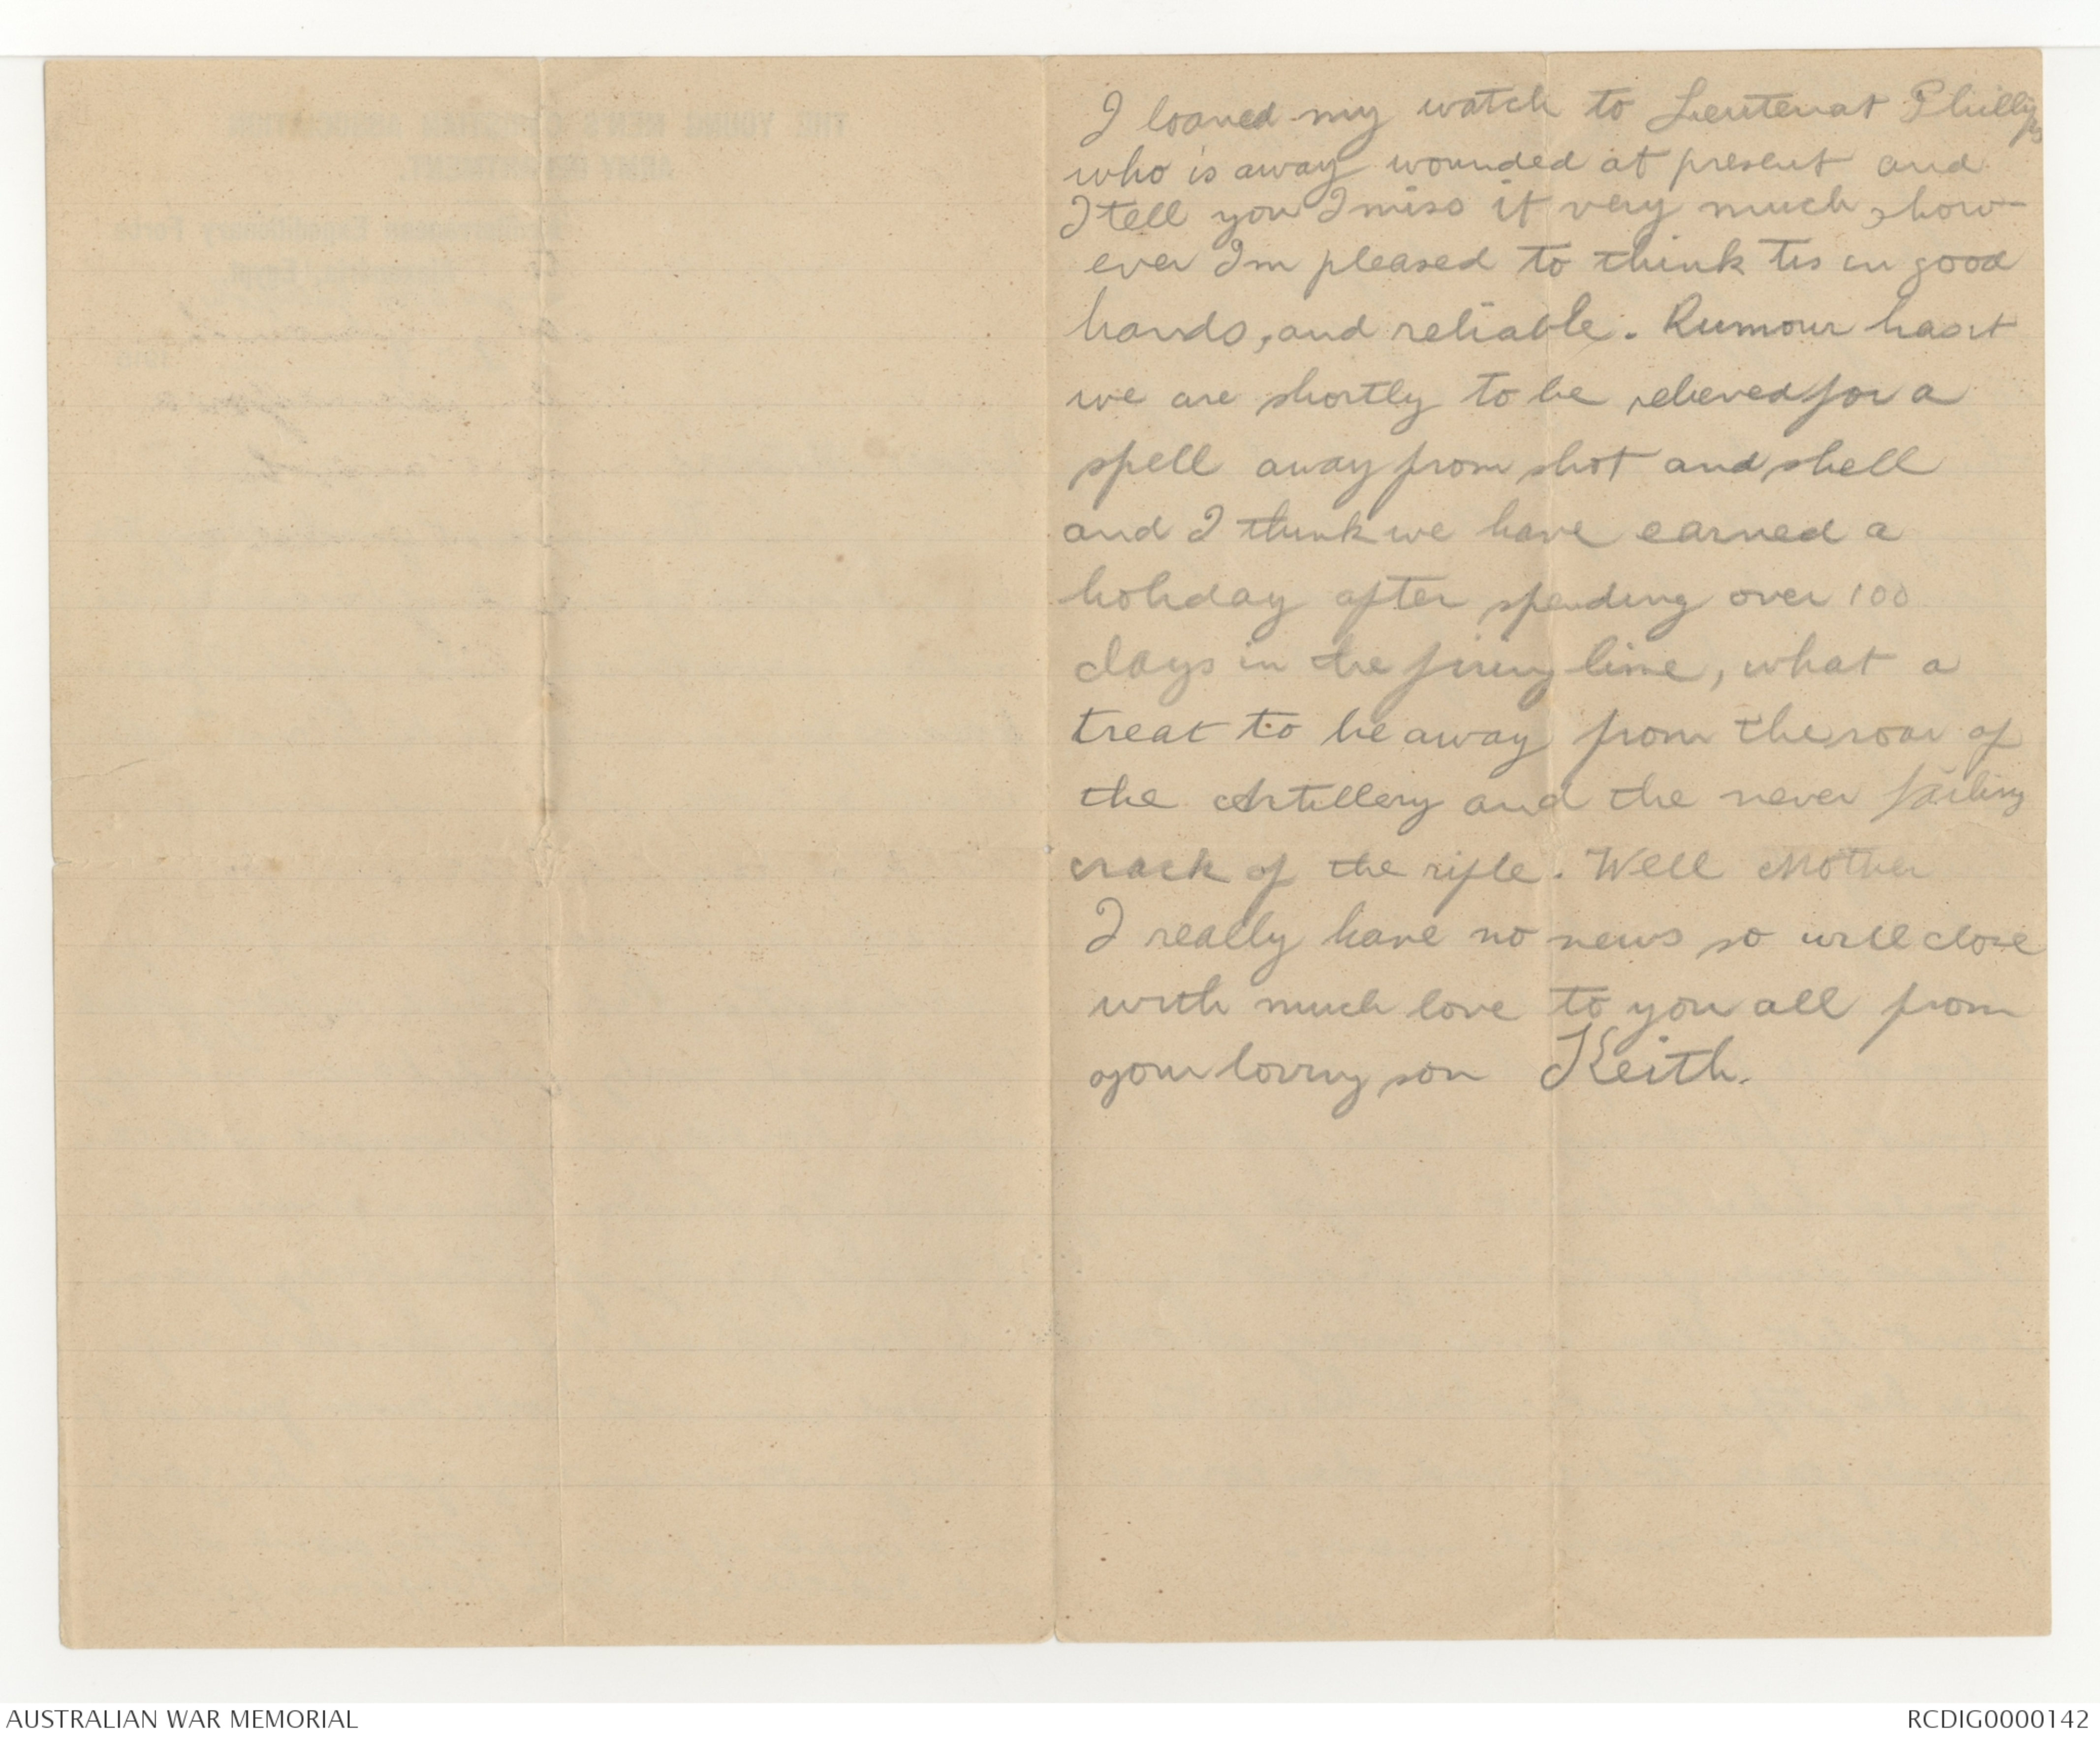 I loaned my watch to Leutenat Phillips
who is away wounded at present and
I tell you I miss it very much, how-
ever Im pleased to think tis in good
hands, and reliable. Rumour hasit
we are shortly to be relieved for a
spell away from shot and shell
and I think we have earned a
holiday after spending over 100
days in the firing line, what a
treat to be away from the roar of
the Artillery and the never failing
crack of the rifle. Well Mother
I really have no news so will close
with much love to you all from
your loving son Keith.
AUSTRALIAN WAR MEMORIAL
RCDIG0000142